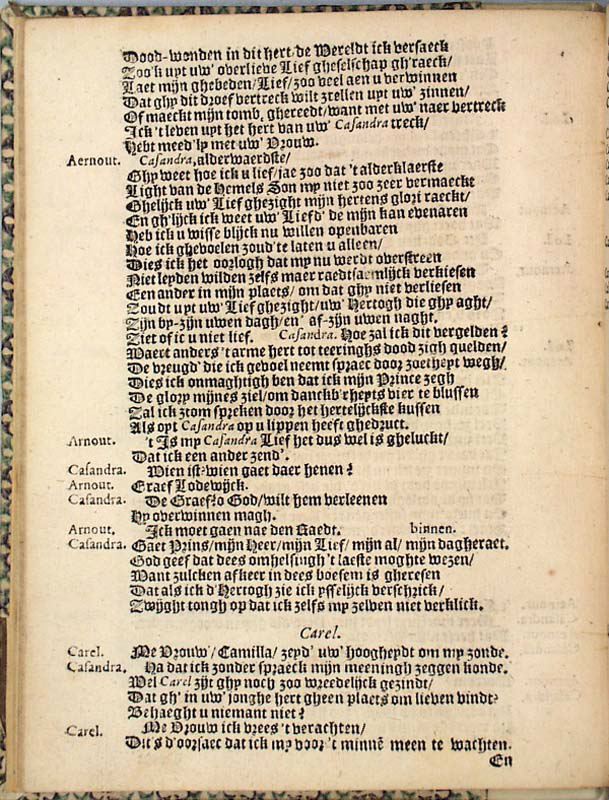 Dood-wonden in dit hert/de Wereldt ick versaeck
Zoo'k uyt uw' overlieve Lief gheselschap gh'raeck/
Laet mijn ghebeden/Lief/zoo veel aen u verwinnen
Dat ghy dit droef vertreck wilt zrellen uyt uw' zinnen/
Of maeckt mijn tomb, ghereedt/want met uw' naer vertreck
Ick 't leven uyt het hert van uw' Casandra treck/
Hebt meed'ly met uw' Vrouw.
Aernout. Casandra, alderwaerdste/
Ghy weet hoe ick u lief/jae zoo dat 't alderklaerste
Light van de Hemels Son my niet zoo zeer vermaeckt
Ghelijck uw' Lief ghezight mijn hertens glori raeckt/
En gh'lijck ick weet uw' Liefd' de mijn kan evenaren
Heb ick u wisse blijck nu willen openbaren
Hoe ick ghevoelen zoud' te laten u alleen/
Dies ick het oorlogh dat my nu werdt overstreen
Niet leyden wilden zelfs maer raedtsaemlijck verkiesen
Een ander in mijn plaets/ om dat ghy niet verliesen
Zoudt uyt uw' Lief ghezight/uw' Hertogh die ghy aght/
Zijn by-zijn uwen dagh/en' af-zijn uwen naght.
Ziet of ic u niet lief. Casandra. Hoe zal ick dit vergelden?
Waert anders 't arme hert tot teeringhs dood zigh quelden/
De vreugd' die ick gevoel neemt spraec door zoetheyt wegh/
Dies ick onmaghtigh ben dat ick mijn Prince zegh
De glory mijnes ziel/om danckb'rheyts vier te blussen
Zal ick ztom spreken door het hertelijckste kussen
Als oyt Casandra op u lippen heeft ghedruct.
Arnout. 't Is my Casandra Lief het dus wel is gheluckt/
Dat ick een ander zend'.
Casandra. Wien ist? wien gaet daer henen?
Arnout. Graef Lodewijck.
Casandra. De Graef? o God/wilt hem verleenen
Hy overwinnen magh.
Arnout. Ick moet gaen nae den Raedt. binnen.
Casandra. Gaet Prins/mijn Heer/mijn Lief/ mijn al/ mijn dagheraet.
God geef dat dees omhelsingh 't laeste moghte wezen/
Want zulcken afkeer in dees boesem is gheresen
Dat als ick d'Hertogh zie ick ysselijck verschrick/
Zwijght tongh op dat ick zelfs my zelven niet verklick.
Carel.
Carel. Me Vrouw'/ Camilla/ zeyd' uw' hoogheydt om my zonde.
Casandra. Ha dat ick zonder spraeck mijn meeningh zeggen konde.
Wel Carel zijt ghy noch zoo wreedelijck gezindt/
Dat gh' in uw' jonghe hert gheen plaets om lieven vindt?
Behaeght u niemant niet?
Carel. Me Vrouw ick vrees 't verachten/
Dit's d'oorsaec dat ick my voor 't minnē meen te wachten.
En